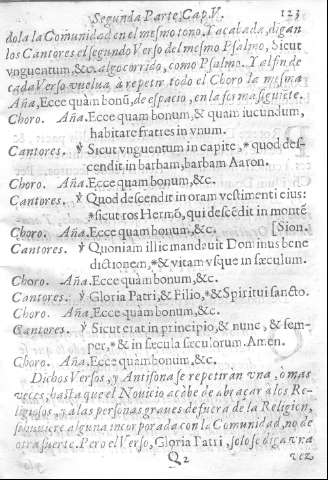 Segunda Parte, Cap. V. 123
dola la Comunidad en el mesmo tono. Y acabada, digan
los Cantores el segundo Verso del mesmo Psalmo, Sicut
vnguentum, &c. algo corrido, como Psalmo. Y al fin de
cada Verso vuelua à repetir todo el Choro la mesma
Aña, Ecce quàm bonũ, de espacio, en la forma siguiẽte.
Choro. Aña. Ecce quam bonum, & quam iucundum,
habitare fratres in vnum.
Cantores. ℣ Sicut vnguentum in capite, * quod des-
cendit in barbam, barbam Aaron.
Choro. Aña. Ecce quam bonum, &c.
Cantores. ℣ Quod descendit in oram vestimenti eius:
* sicut ros Hermõ, qui descẽdit in montẽ
Choro. Aña. Ecce quam bonum, &c. [Sion.
Cantores. ℣ Quoniam illic mandauit Dominus bene
dictionem, * & vitam vsque in sæculum.
Choro. Aña. Ecce quàm bonum, &c.
Cantores. ℣ Gloria Patri, & Filio, * & Spiritui sancto.
Choro. Aña. Ecce quàm bonum, &c.
Cantores. ℣ Sicut erat in principio, & nunc, & sem-
per, * & in sæcula sæculorum. Amen.
Choro. Aña. Ecce quàm bonum, &c.
Dichos Versos, y Antifona se repetiràn vna, ò mas
vezes, hasta que el Nouicio acabe de abraçar à los Re-
ligiosos, y a las personas graues de fuera de la Religion,
si huuiere alguna incorporada con la Comunidad, no de
otra suerte. Pero el Verso, Gloria Patri, solo se diga vna
Q 2 vez